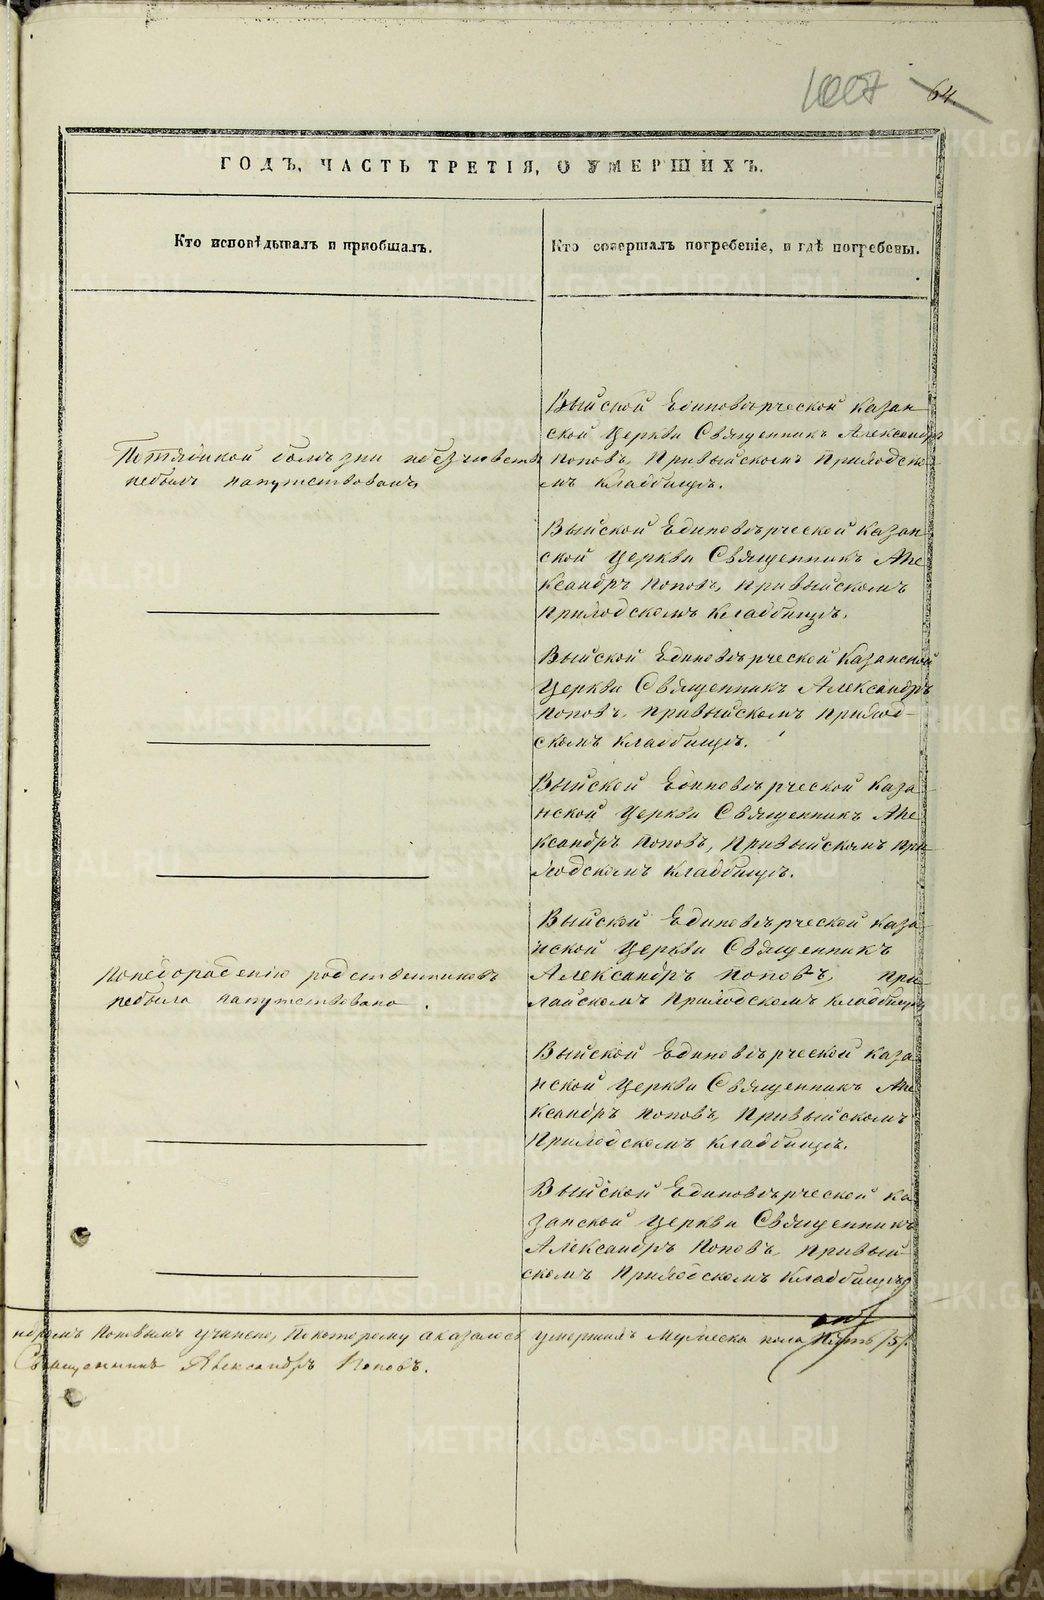 1007 64.
ГОДЪ, ЧАСТЬ ТРЕТІЯ, О УМЕРШИХЪ.
Кто исповѣдывалъ и пріобщалъ.
Кто совершалъ погребеніе, и гдѣ погребены.
Выйской Единовѣрческой Казан
ской Церкви Священникъ Александръ
Поповъ, Привыйскомъ Приходско
мъ Кладбищѣ.
болѣзни
небылъ напутствованъ
Выйской Единовѣрческой Казан
ской Церкви Священникъ Але
ксандръ Поповъ, Привыйскомъ
Приходскомъ Кладбищѣ.
Выйской Единовѣрческой Казанской
Церкви Священникъ Александръ
Поповъ, Привыйскомъ Приход-
скомъ Кладбищѣ.
Выйской Единовѣрческой Каза
нской Церкви Священникъ Але
ксандръ Поповъ, Привыйскомъ При
ходскомъ Кладбищѣ.
Понедорадѣнію родственниковъ
небыла напутствована.
Выйской Единовѣрческой Каза
нской Церкви Священникъ
Александръ Поповъ, При
лайскомъ Приходскомъ Кладбищѣ
Выйской Единовѣрческой Каза
нской Церкви Священникъ Але
ксандръ Поповъ, Привыйскомъ
Приходскомъ Кладбищѣ.
Выйской Единовѣрческой Ка
занской Церкви Священникъ
Александръ Поповъ, Привый-
скомъ Приходскомъ Кладбищѣ
учинено, Покоторому оказалось умершихъ Мужеска пола Пять /5/.
Священникъ Александръ Поповъ.
METRIKI.GASO-URAL.RU